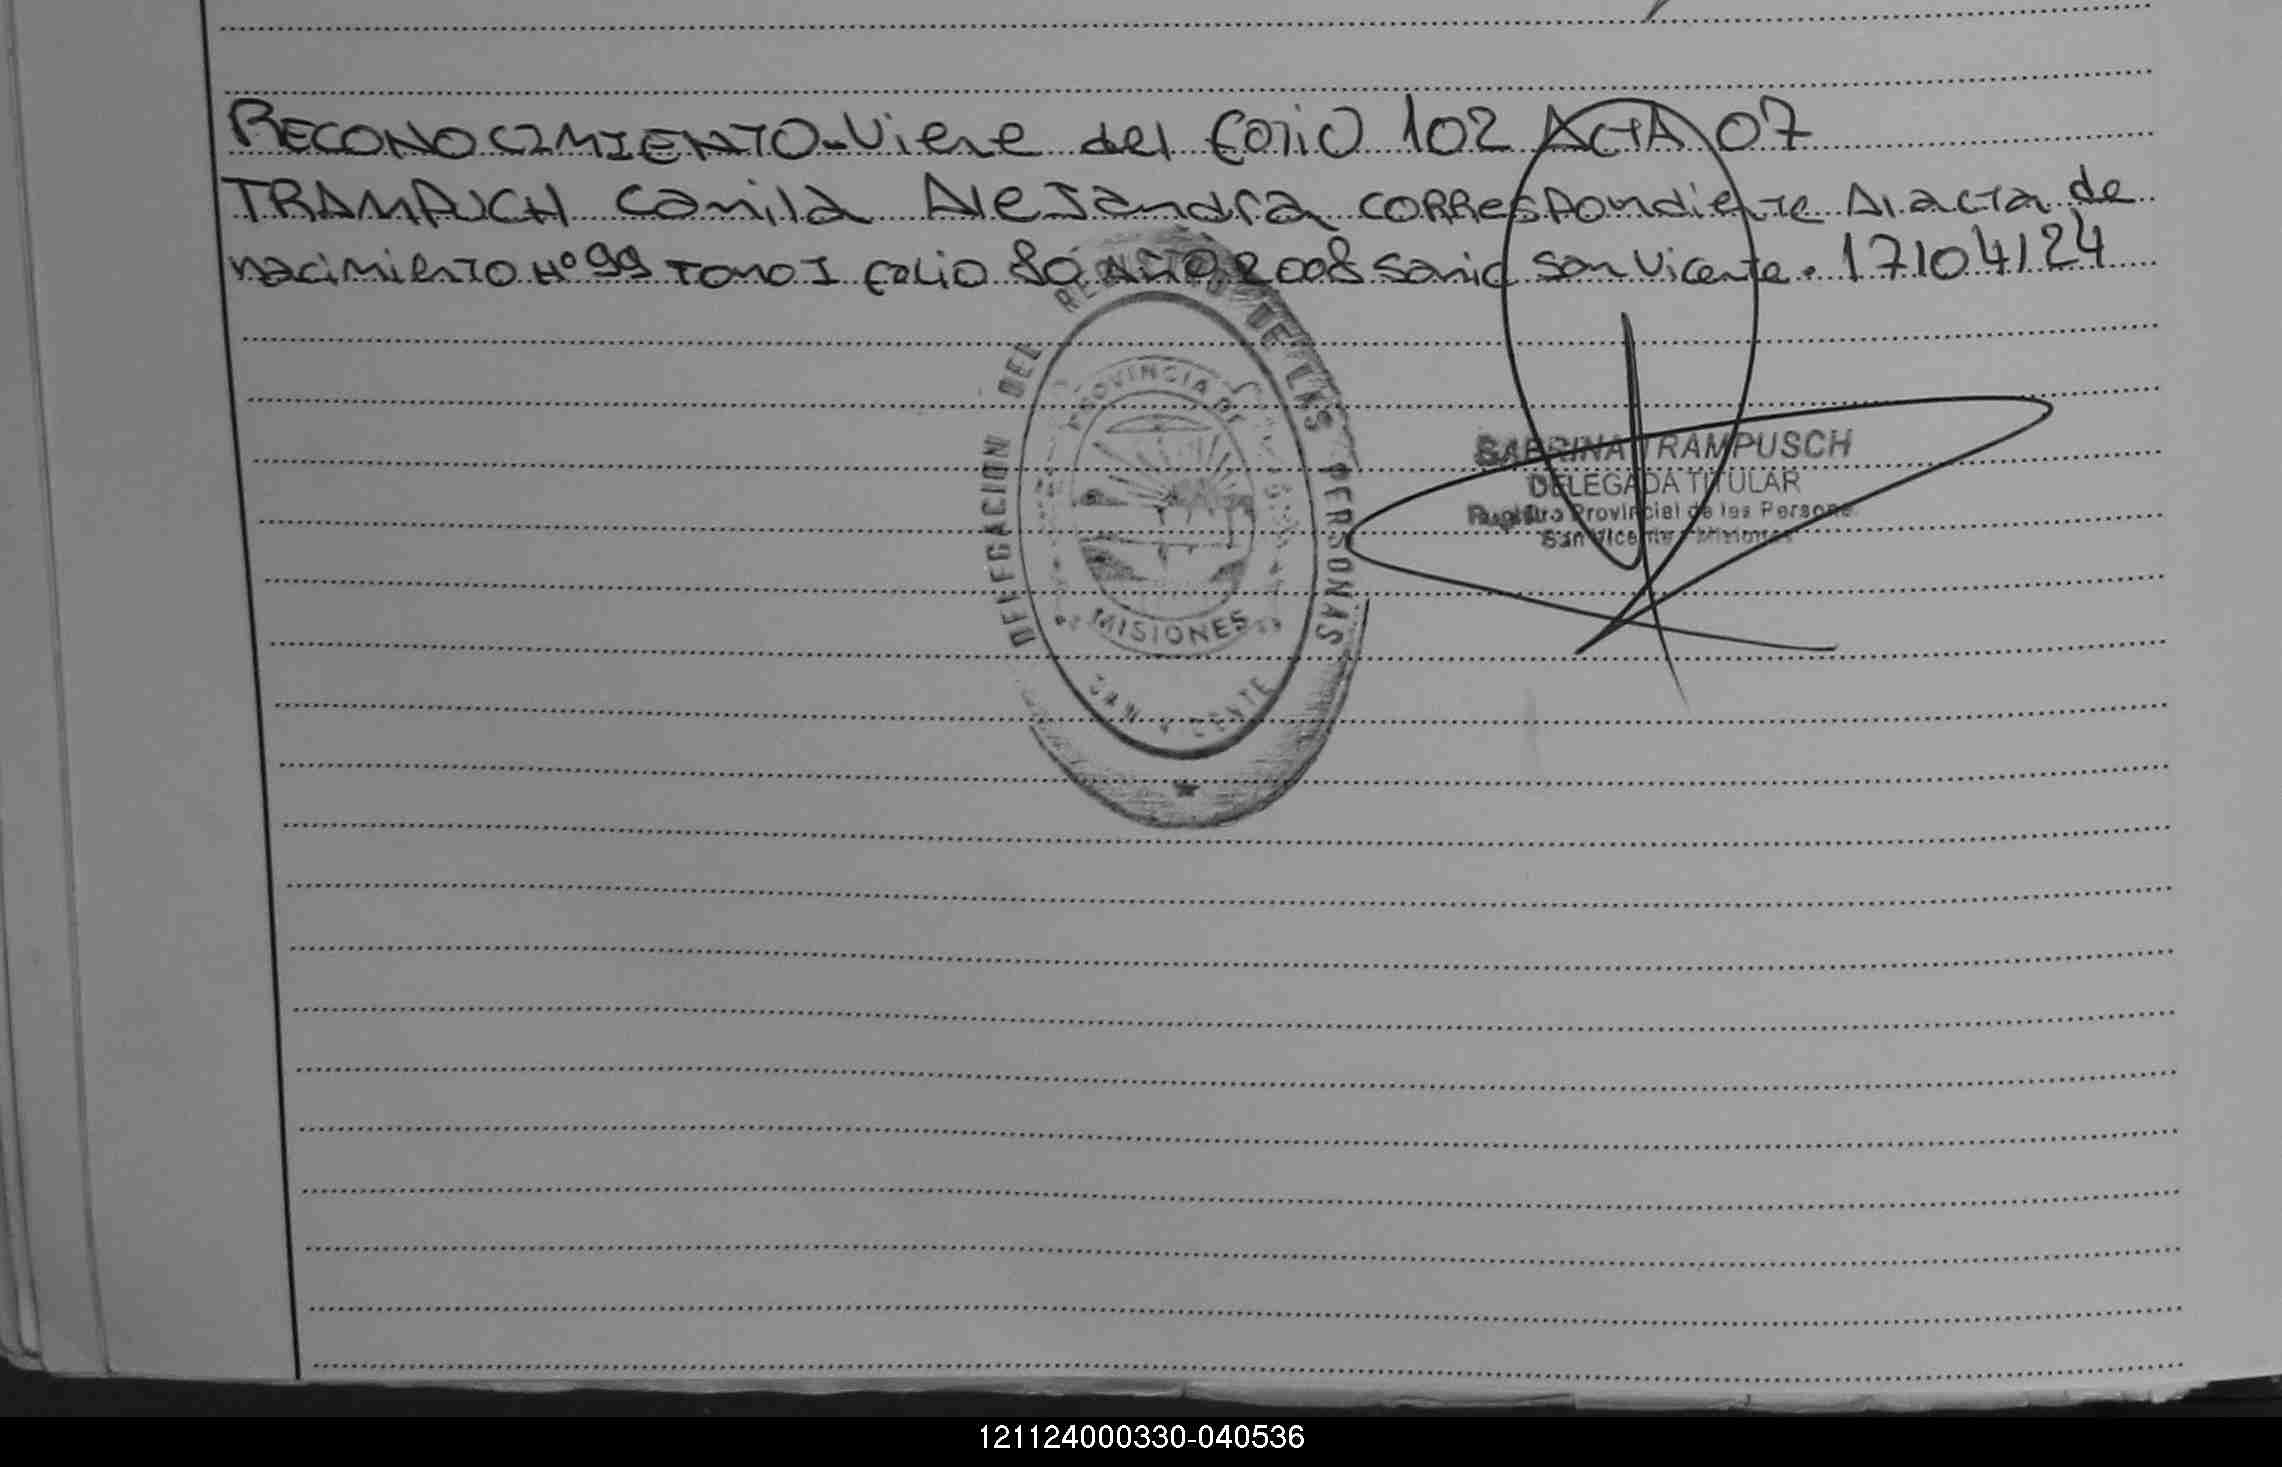 RECONOCIMIENTO-Viene del folio 102 ACTA 07
TRAMPUCH Camila Alejandra correspondiente Al acta de
nacimiento Nº 99 Tomo I folio 80 Año 2008 Sonia San Vicente. 17/04/24
DELEGACION DEL REGISTRO DE LAS PERSONAS
PROVINCIA DE
MISIONES
SAN VICENTE
SABRINA TRAMPUSCH
DELEGADA TITULAR
Registro Provincial de las Persona
San Vicente - Misiones
121124000330-040536